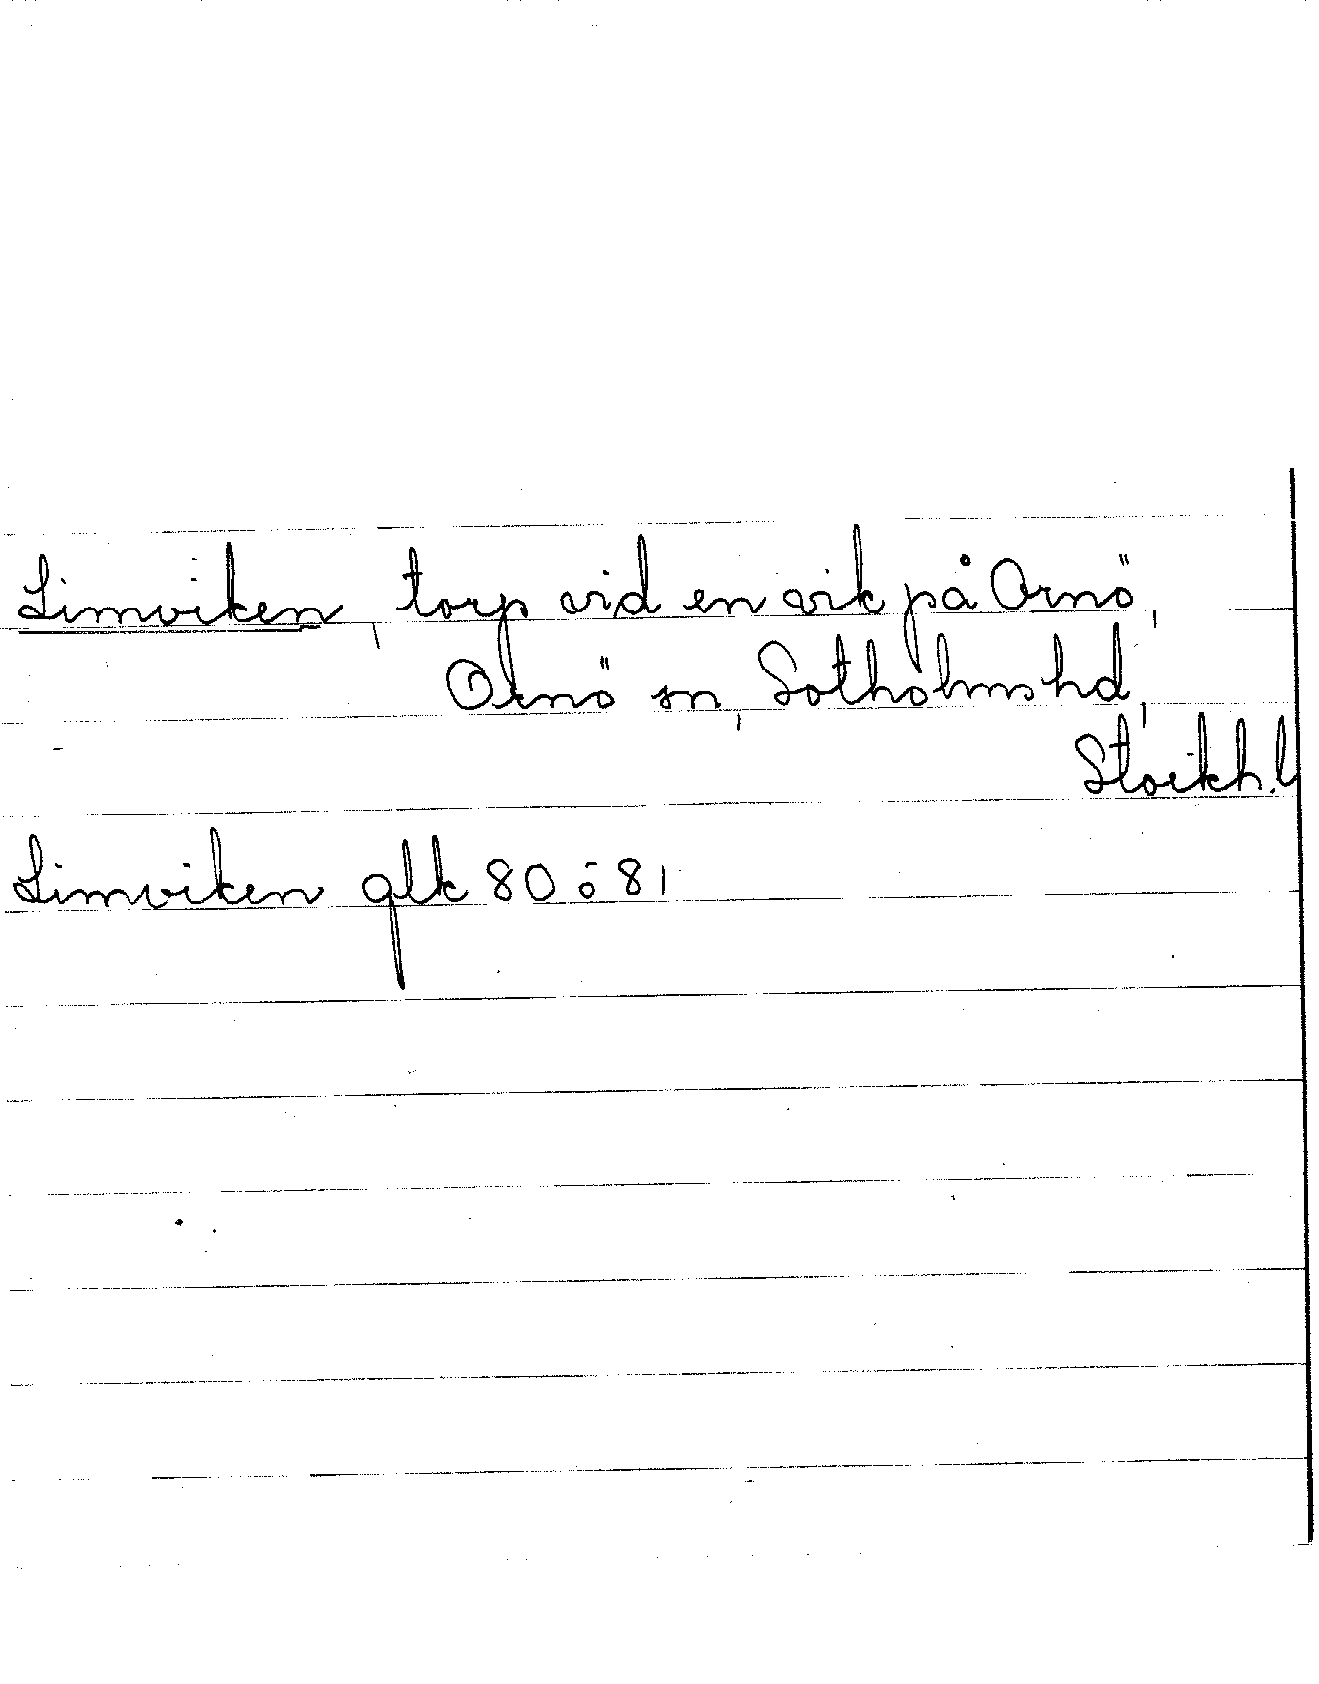 Limviken, torp vid en vik på Ornö,
Ornö sn, Sotholms hd,
Stockh. l
Limviken glk 80 ö 81